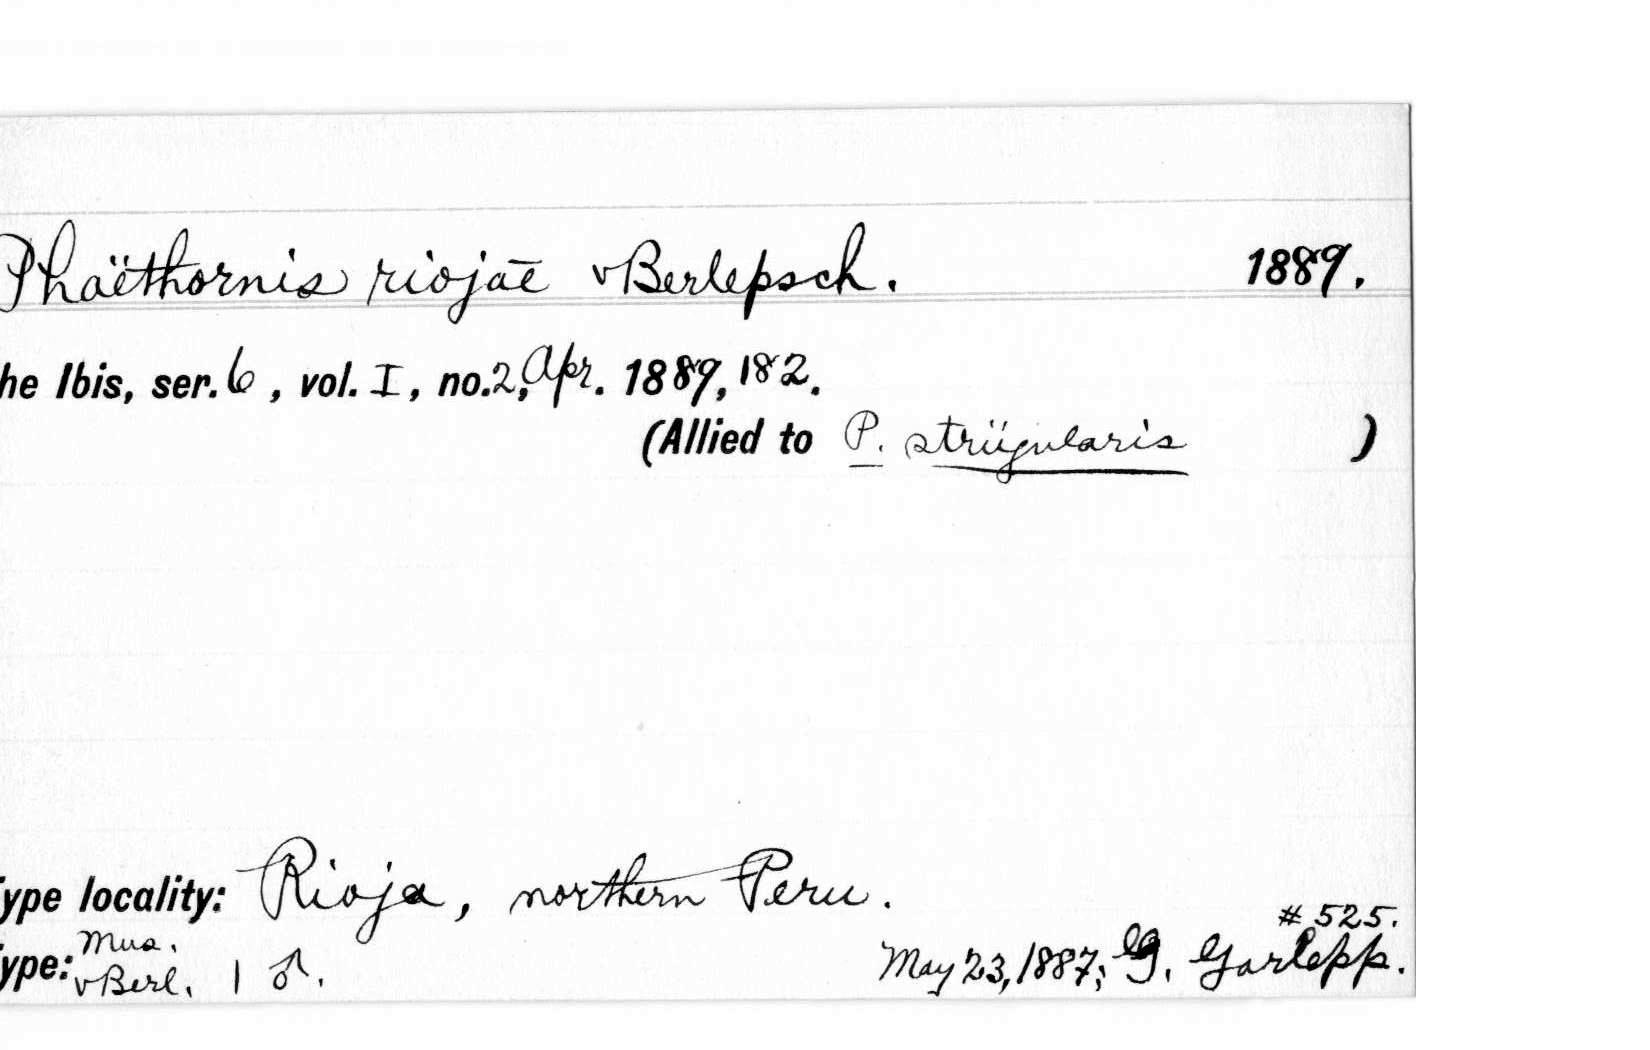 Phaëthornis riojae vBerlepsch. 1889.
he Ibis, ser. 6, vol. I, no. 2, Apr. 1889, 182.
(Allied to P. striigularis )
ype locality: Rioja, northern Peru.
# 525.
Mus.
ype: vBerl. 1 ♂. May 23, 1887; G. Garlepp.